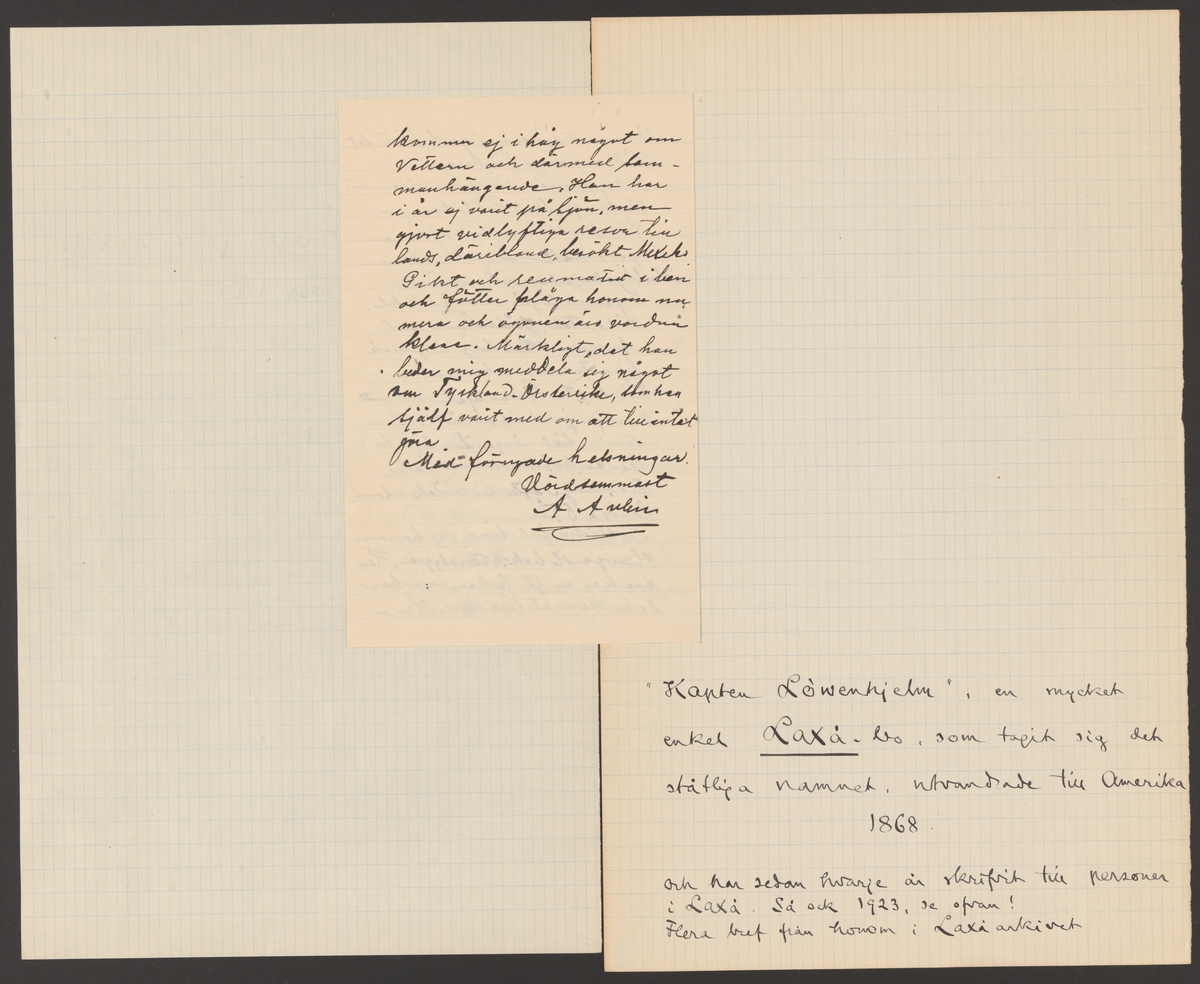 kommer ej i håg något om
Vettern och därmed sam-
manhängande. Han har
i år ej varit på sjön, men
gjort vidlyftiga resor till
lands, däribland, besökt Mexiko
Gikt och reumatism i ben
och fötter plåga honom nu-
mera och ögonen äro vordna
klena. Märkligt, det han
beder mig meddela sig något
om Tyskland-Österrike, som han
sjålf varit med om att till intet
göra
Med förnyade helsningar.
Vördsammast
A
"Kapten Löwenhjelm", en mycket
enkel Laxå-bo, som tagit sig det
ståtliga namnet, utvandrade till Amerika
1868.
och har sedan hvarje år skrifvit till personer
i Laxå. Så ock 1923, se ofvan!
Flera bref från honom i Laxåarkivet